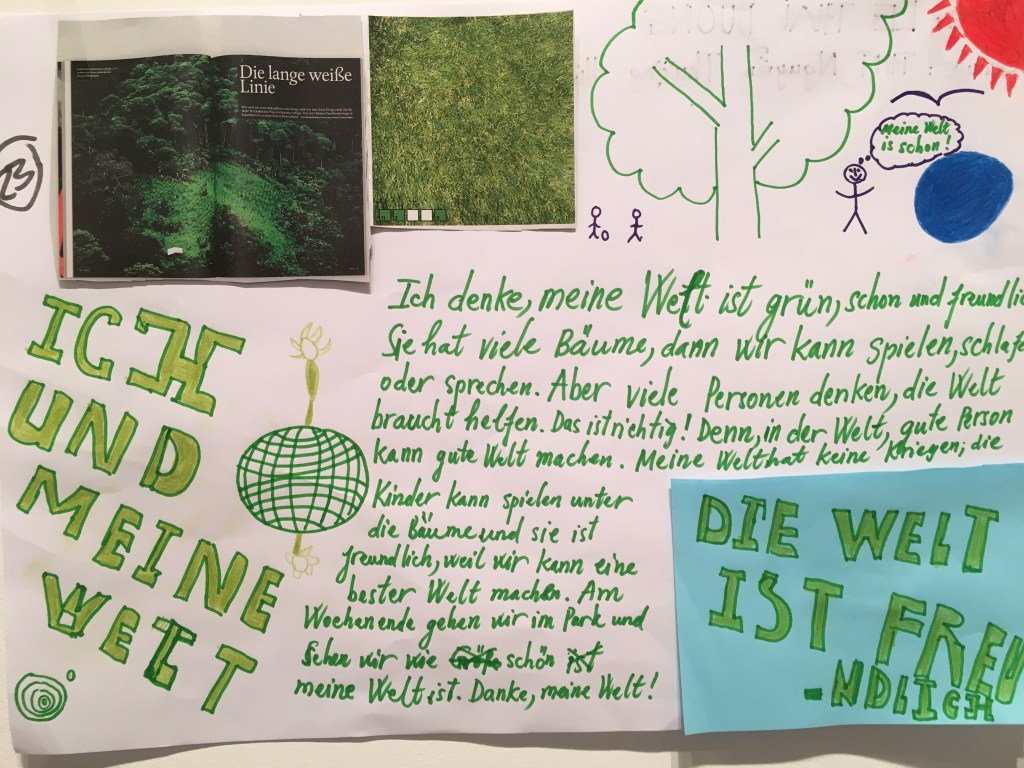 Die lange weiße
Linie
Meine Welt
is schon!
23
Ich denke, meine Welt ist grün, schon und freundlic
Sie hat viele Bäume, dann wir kann spielen, schlafe
oder sprechen. Aber viele Personen denken, die Welt
braucht helfen. Das ist richtig! Denn, in der Welt, gute Person
kann gute Welt machen. Meine Welt hat keine Kriegen, die
Kinder kann spielen unter
die Bäume und sie ist
freundlich, weil wir kann eine
bester Welt machen. Am
Wochenende gehen wir im Park und
sehen wir wie schön
meine Welt ist. Danke, meine Welt!
ICH
UND
MEINE
WELT
DIE WELT
IST FREU
-NDLICH